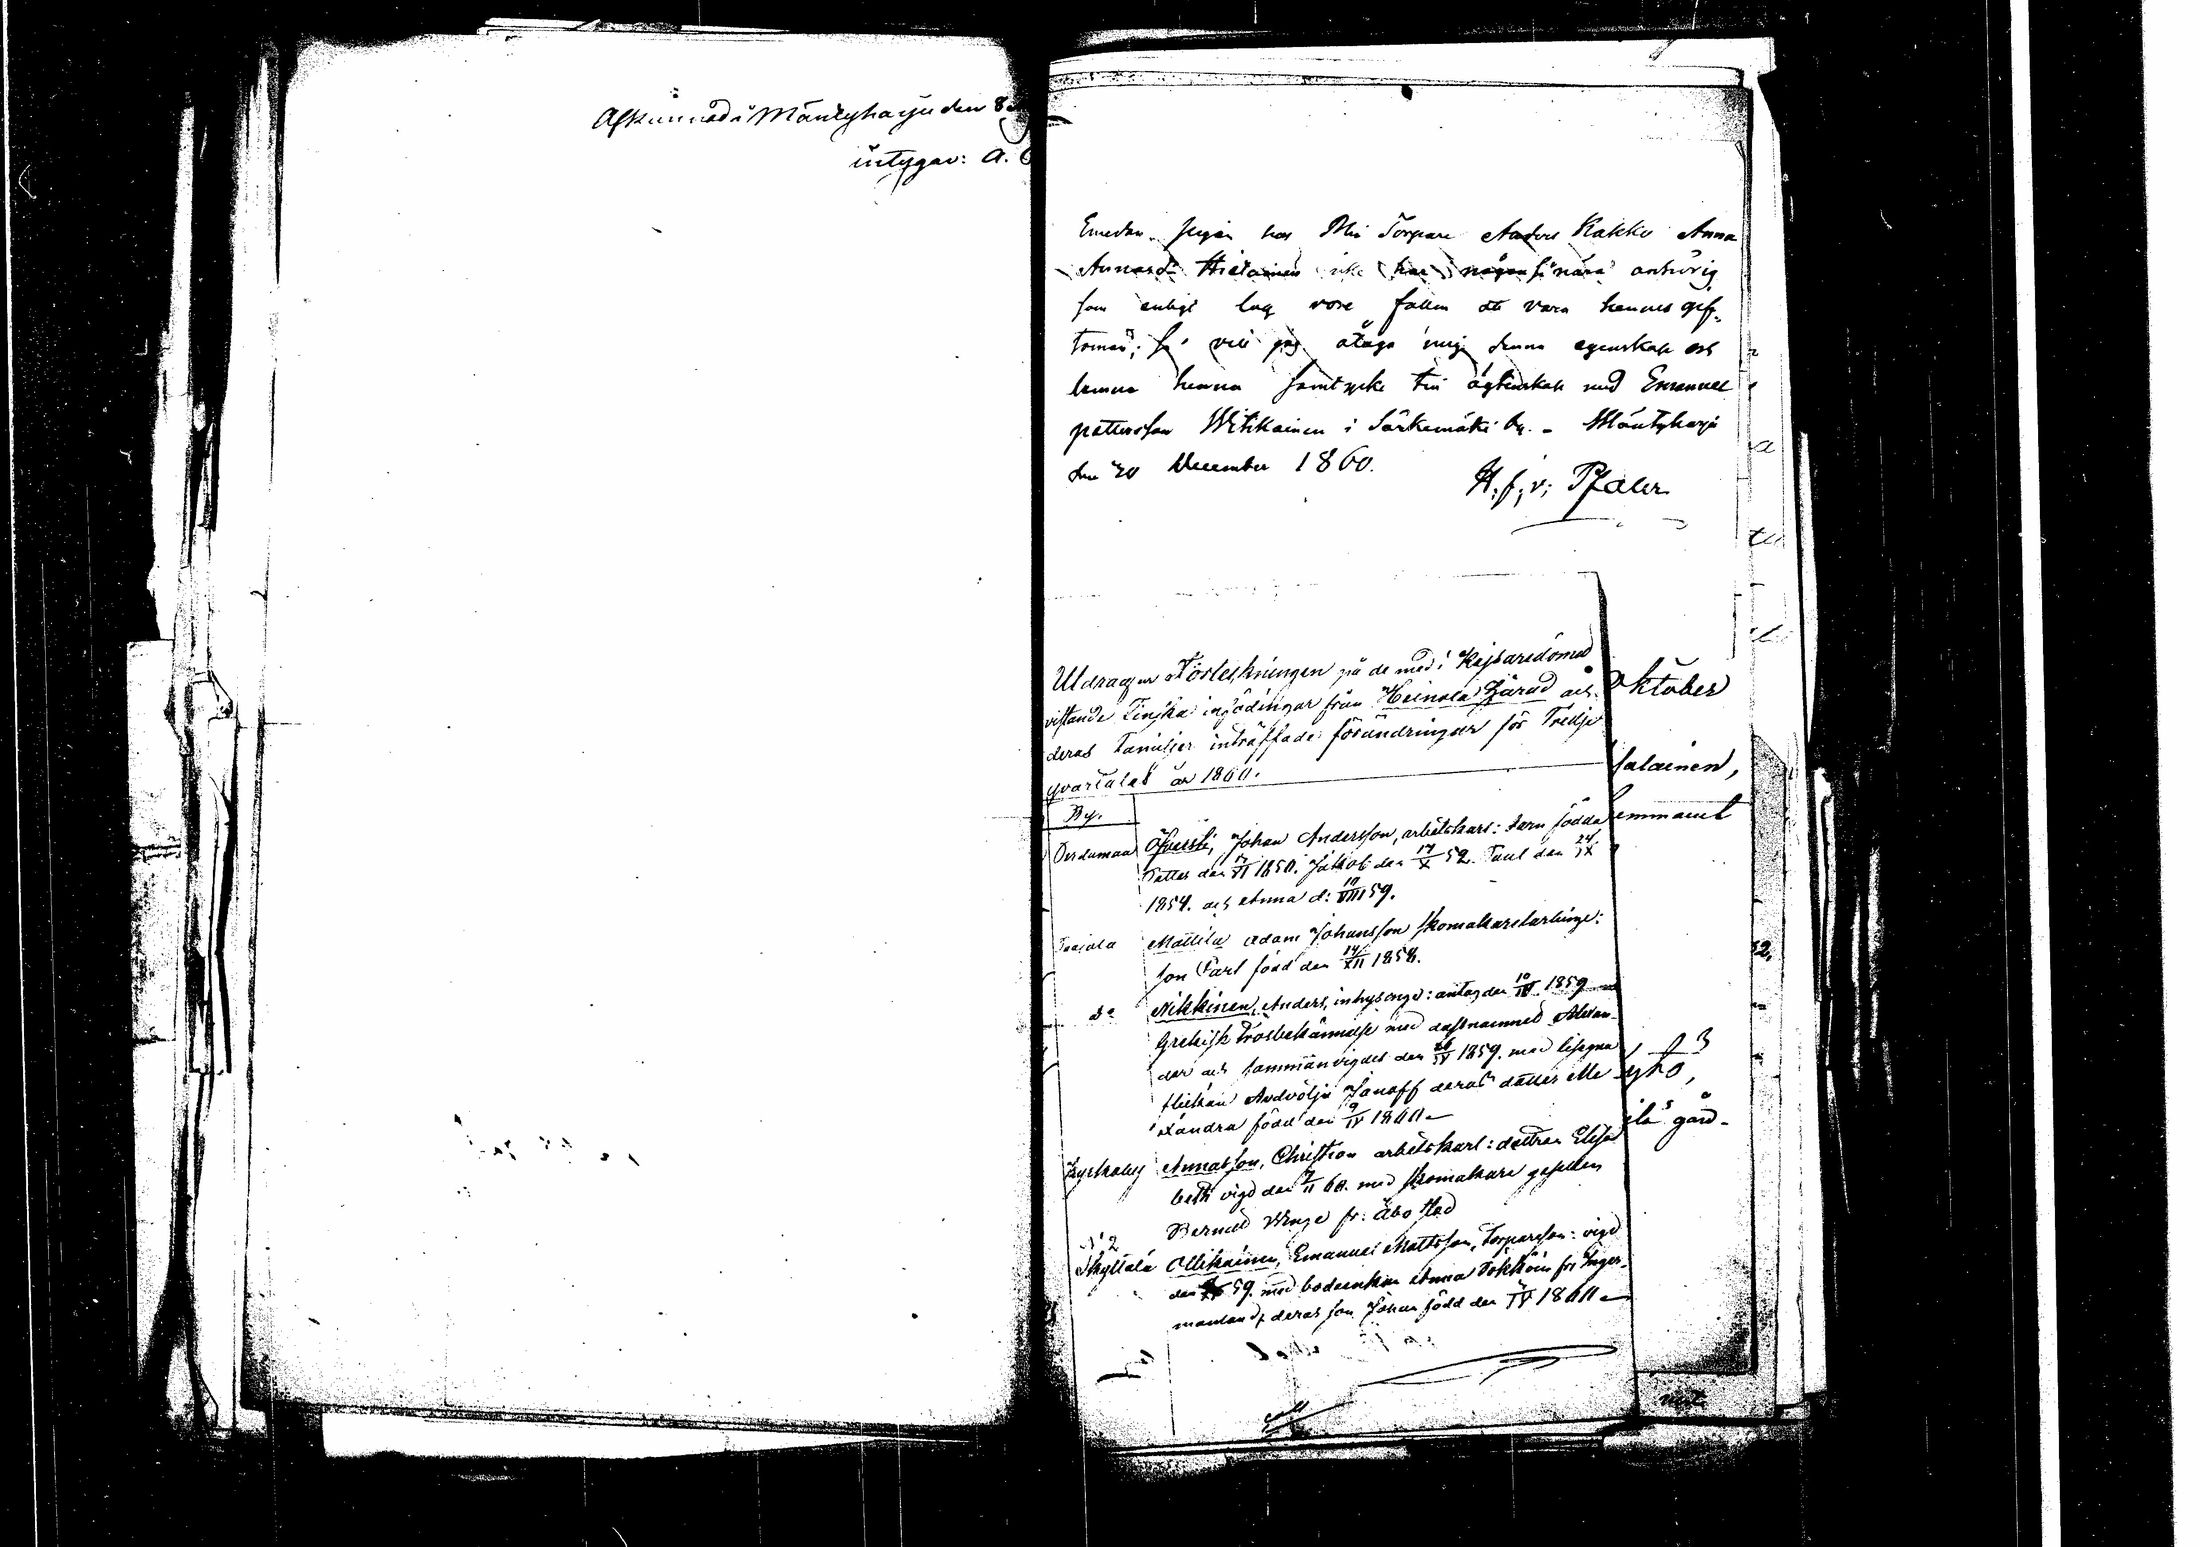 Afkunnad i Mäntyharju den 8
intygar: A.
Emedan pigan hos Min Torpare Anders Kakko Anna
Annasd: Hietainen icke har någon så nära anhörig
som enligt lag vore fallen att vara hennes gif-
toman; så vill jag åtaga mig denna egenskap och
lemna henne samtycke till ägtenskap med Emanuel
pettersson Witikainen i Särkemäki by. - Mäntyharju
den 20 December 1860.
H. f. v. Pfaler
Utdrag ur Förteckningen på de med i Kejsaredömet
vistande Finska infödingar från Heinola Härad och
deras Familjer inträffade förändringar för Tredje
qvartalet år 1860.
By.
Johan Andersson, arbetskarl: barn födda
Petter den 17/VI 1850. Jakob den 17/X 52. Paul den 24/IX
1854. och Anna d: 10/VIII 59.
Mattila Adam Johansson skomakarelärlinge:
son Carl född den 14/XII 1858.
Do Nikkinen, Anders, inhysenge: antog den 10/IV 1859
Grekisk Trosbekännelse med dopnamnet Alexan-
der och sammanvigdes den 26/IV 1859. med
flickan Avdvotja Janoff deras dotter Alle
xandra född den 9/IV 1860
Kyrkoby Annasson, Christian arbetskarl: dottren Elisa
beth vigd den 7/II 60. med skomakare gesellen
Bernard Wenge fr: Åbo stad
No 2
Skyttälä Ollikainen, Emanuel Mattsson, Torpareson: vigd
den 59. med bondeenkan Anna Tokkoin fr: Inger-
manland, deras son Johan född den /IV 1860
Oktober
salainen,
emmanet
13
yho,
ilä gård-